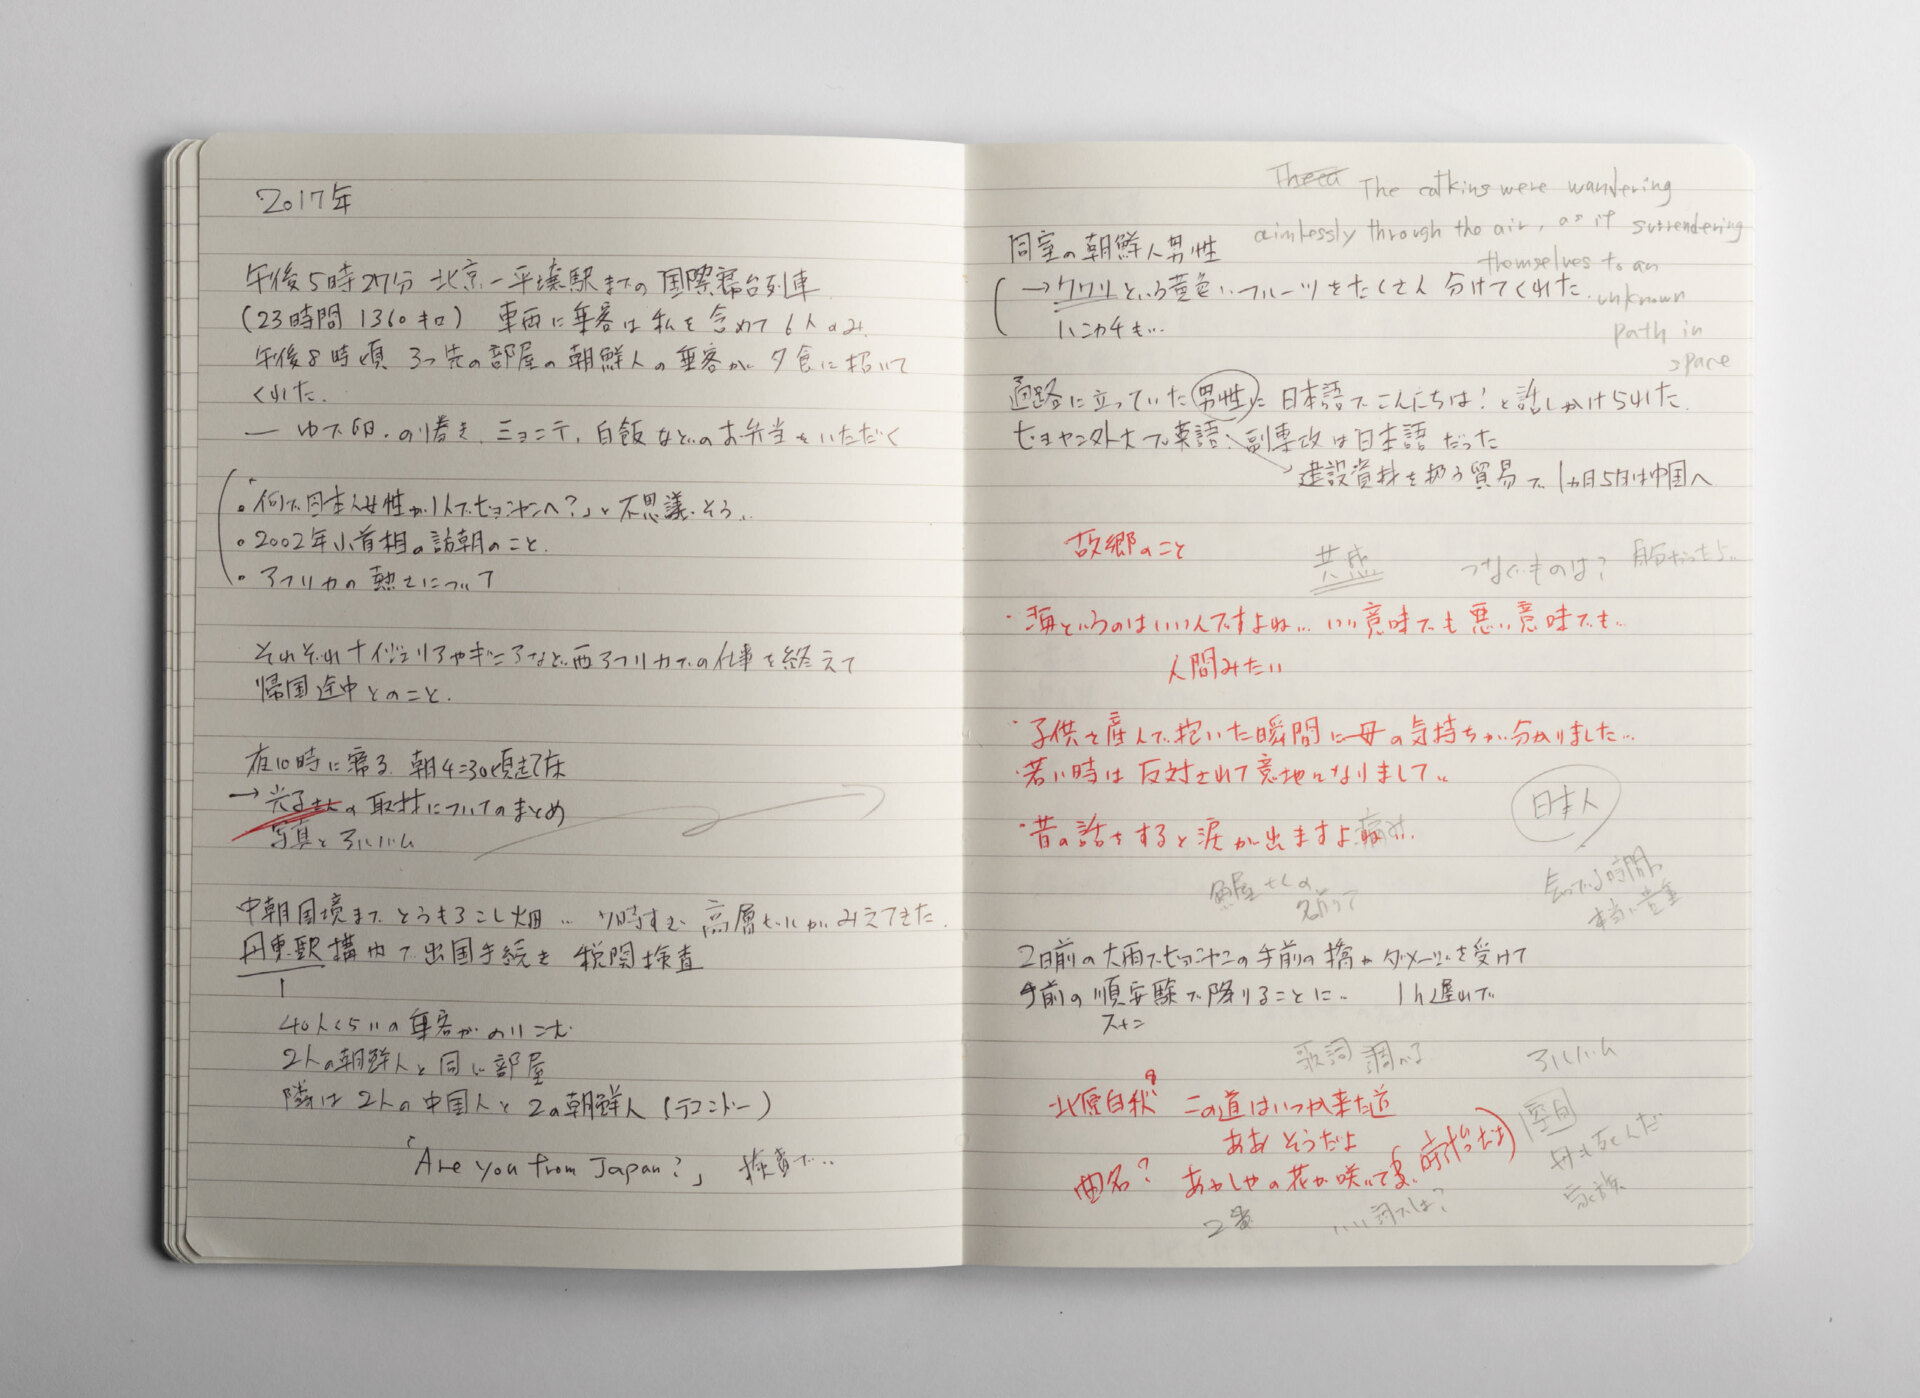 2017年
午後5時27分 北京ー平壌駅までの国際寝台列車
(23時間 1360キロ) 車両に乗客は私を含めて6人のみ.
午後8時頃 3つ先の部屋の朝鮮人の乗客が 夕食に招いて
くれた.
— ゆで卵. のり巻き. ミョンテ, 白飯などのお弁当をいただく
・「何で日本人女性が1人でピョンヤンへ?」と不思議そう..
・2002年小首相の訪朝のこと.
・アフリカの熱さについて
それぞれナイジェリアやギニアなど西アフリカでの仕事を終えて
帰国途中とのこと.
夜10時に寝る. 朝4:30頃起床
→ 光子さんの取材についてのまとめ
写真とアルバム
中朝国境まで とうもろこし畑 .. 7時すぎ 高層ビルがみえてきた.
丹東駅構内で出国手続き 税関検査
40人くらいの乗客がのりこむ
2人の朝鮮人と同じ部屋
隣は 2人の中国人と 2の朝鮮人 (テコンドー)
「Are you from Japan?」 検査で..
The catkins were wandering
aimlessly through the air, as if surrendering
themselves to an
unknown
path in
space
同室の朝鮮人男性
→ クワリという黄色いフルーツをたくさん 分けてくれた.
ハンカチも..
通路に立っていた男性に 日本語でこんにちは? と話しかけられた.
ピョンヤン外大で英語、副専攻は日本語 だった
→ 建設資材を扱う貿易で 1カ月5日は中国へ
故郷のこと
共感
つなぐものは?
自分だったら..
・海というのはいいんですよね... いい意味でも悪い意味でも..
人間みたい
・子供を産んで抱いた瞬間に母の気持ちが分かりました..
・若い時は反対されて意地になりまして..
日本人
・昔の話をすると涙が出ますよね...
会っている時間
本当に貴重
2日前の大雨でピョンヤンの手前の橋がダメージを受けて
手前の順安駅で降りることに.. 1h遅れで
スナン
歌詞 調べる
アルバム
北原白秋? この道はいつか来た道
ああ そうだよ
曲名? あかしやの花が咲いてる
2番
いい詞では?
家族